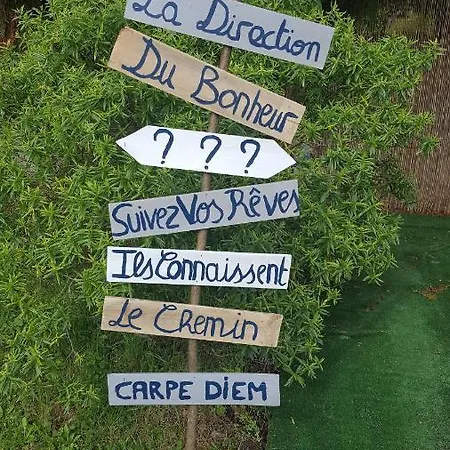 La Direction
Du Bonheur
? ? ?
Suivez Vos Rêves
Ils Connaissent
Le Chemin
CARPE DIEM